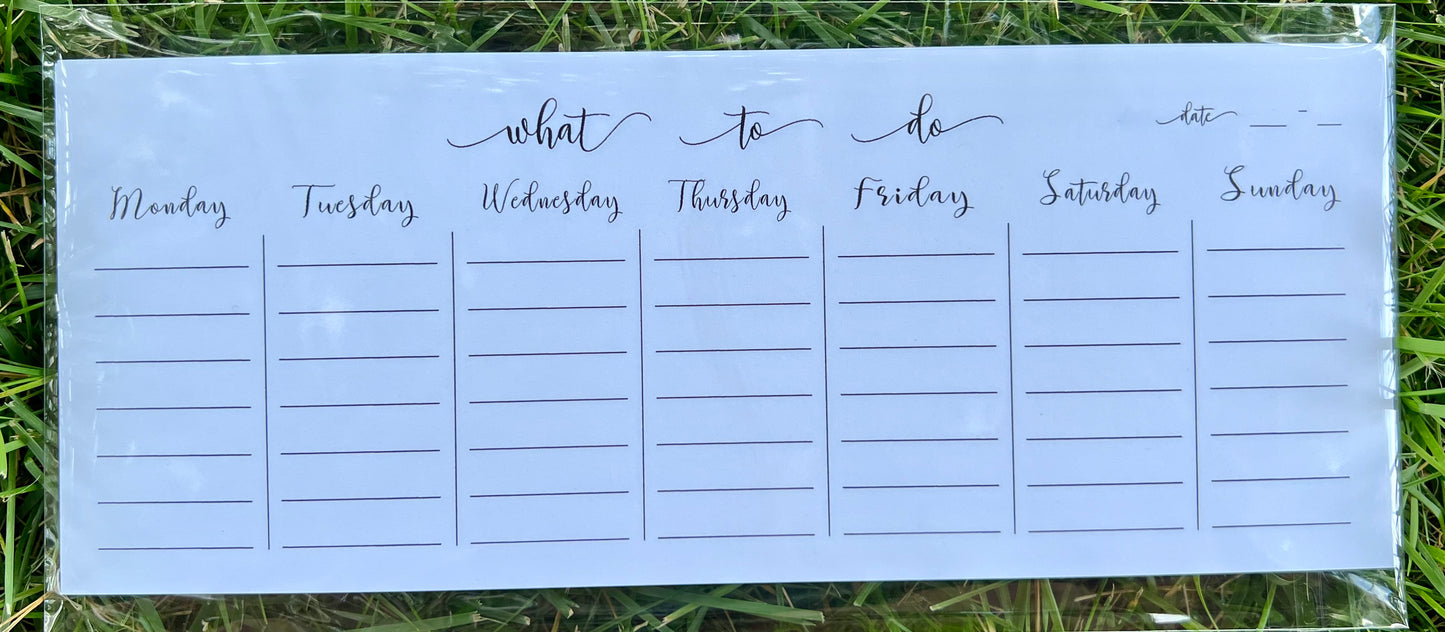 what to do
date __ - __
Monday Tuesday Wednesday Thursday Friday Saturday Sunday